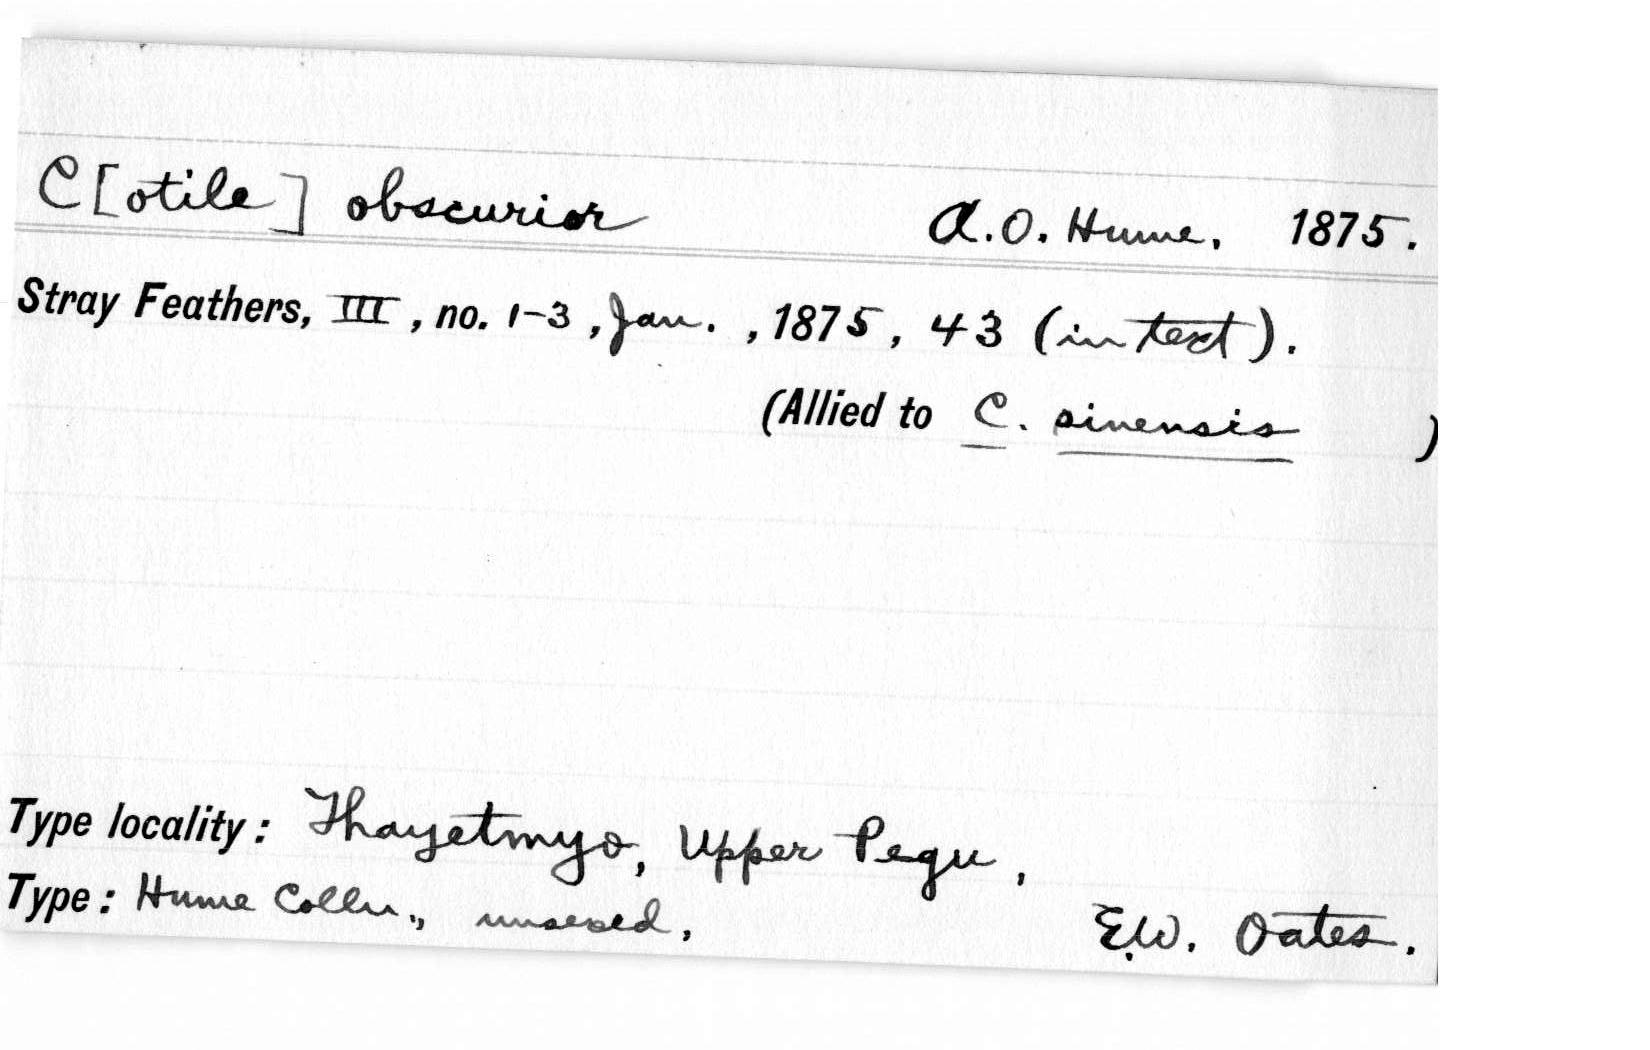 C[otile] obscurior A.O. Hume. 1875.
Stray Feathers, III, no. 1-3, Jan. , 1875, 43 (in text).
(Allied to C. sinensis )
Type locality: Thayetmyo, Upper Pegu,
Type: Hume Colln., unsexed, E.W. Oates.